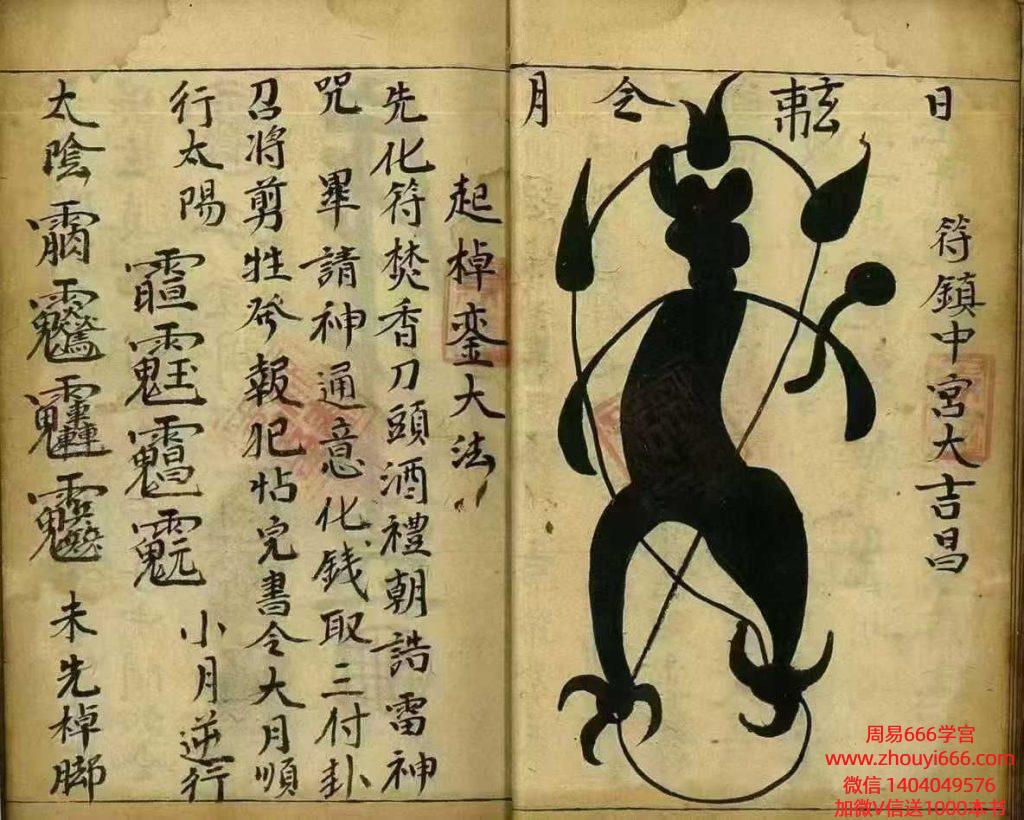 日 令 月
符鎮中宮大吉昌
起棹銮大法
先化符焚香刀頭酒禮朝誥雷神
咒 畢請神通意化錢取三付卦
召將剪牲發報犯帖完書令大月順
行太陽 小月逆行
太陰 未先棹脚
周易666学宫
www.zhouyi666.com
微信 1404049576
加微V信送1000本书